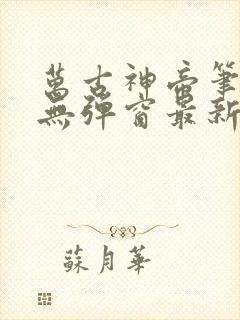 萬古神帝筆
無彈窗最新
蘇月華